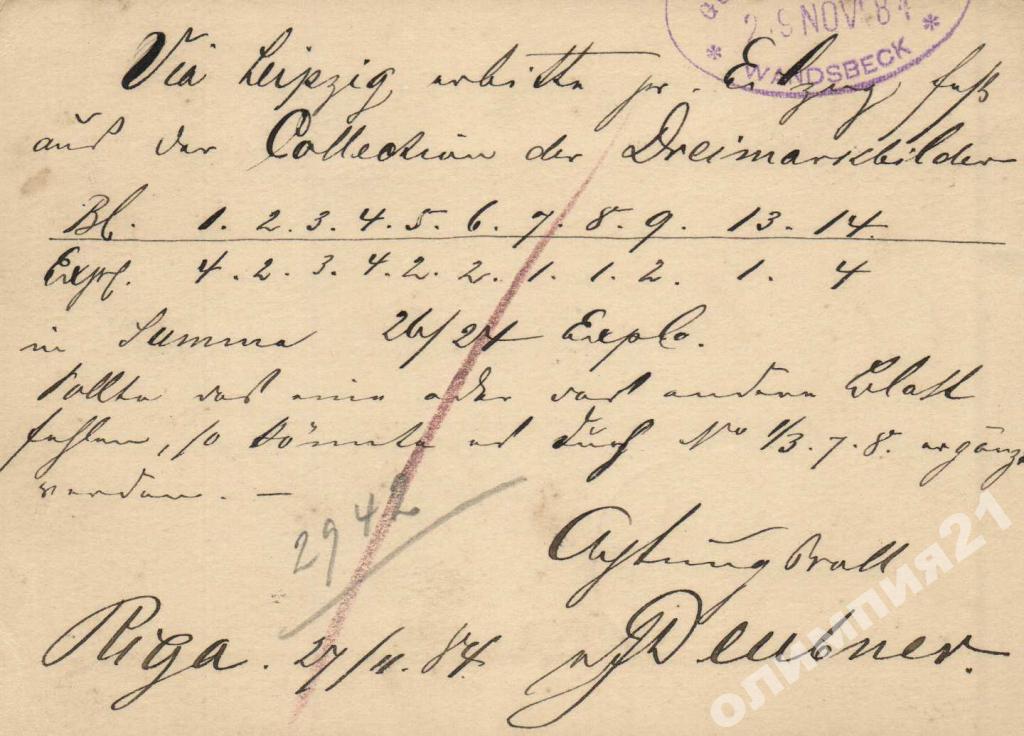 29 NOV 84
WANDSBECK
Via Leipzig erbitte pr. Eilzug fest
aus der Collection der Dreimarkbilder
Bl. 1. 2. 3. 4. 5. 6. 7. 8. 9. 13. 14.
Expl. 4. 2. 3. 4. 2. 2. 1. 1. 2. 1. 4
in Summa 26/24 Explo.
Sollte das eine oder das andere Blatt
fehlen, so könnte es durch No 1/3. 7. 8. ergänzt
werden. —
2942
Achtungsvoll
Riga. 27/11. 84. Deubner.
олимпия21